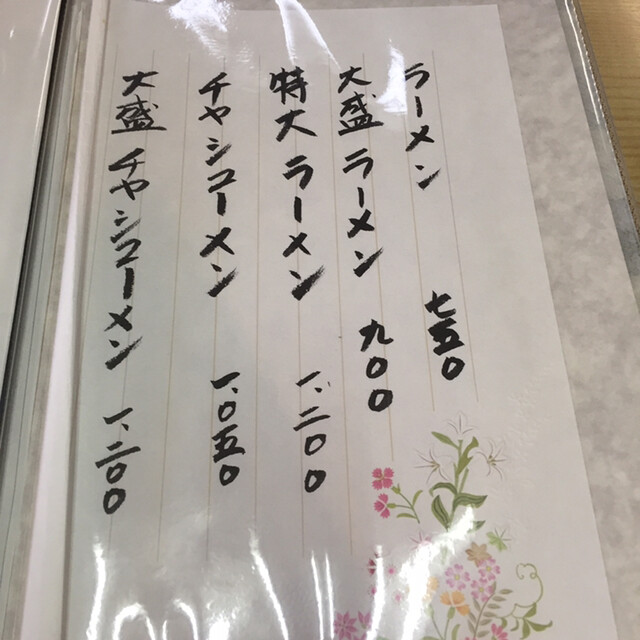 ラーメン 七五〇
大盛ラーメン 九〇〇
特大ラーメン 一、二〇〇
チャシューメン 一、〇五〇
大盛チャシューメン 一、二〇〇